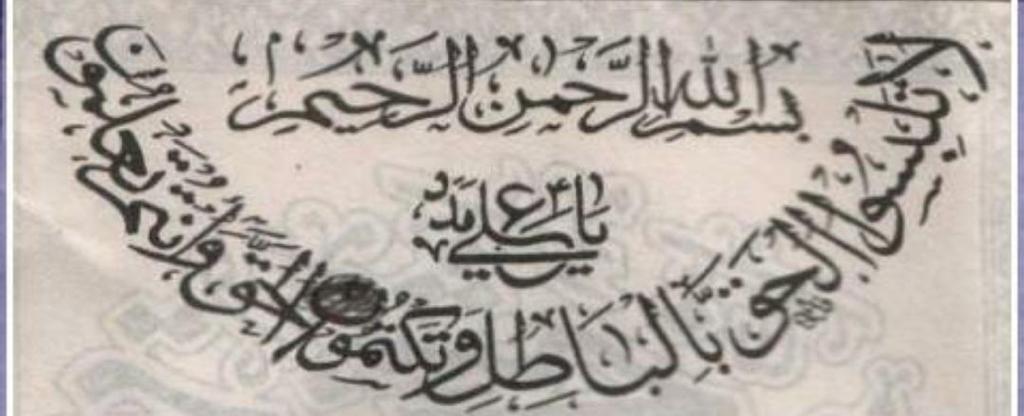 بسم الله الرحمن الرحیم
یا علی مدد
لا تلبسوا الحق بالباطل وتکتموا الحق وانتم تعلمون